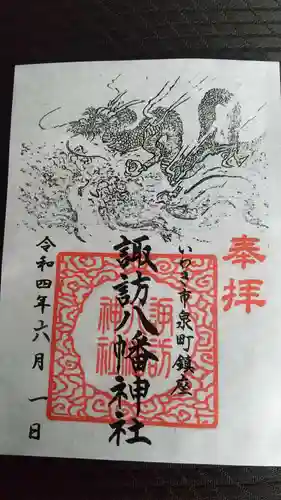 奉拝
いわき市泉町鎮座
諏訪八幡神社
諏訪
神社
令和四年六月一日